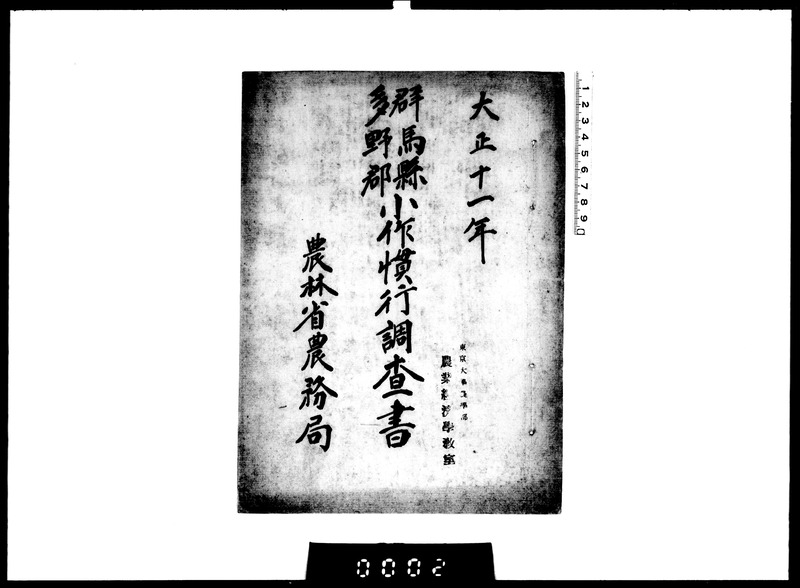 大正十一年
群馬縣
多野郡
小作慣行調査書
農林省農務局
東京大學農學部
農業経済學教室
1 2 3 4 5 6 7 8 9
0002